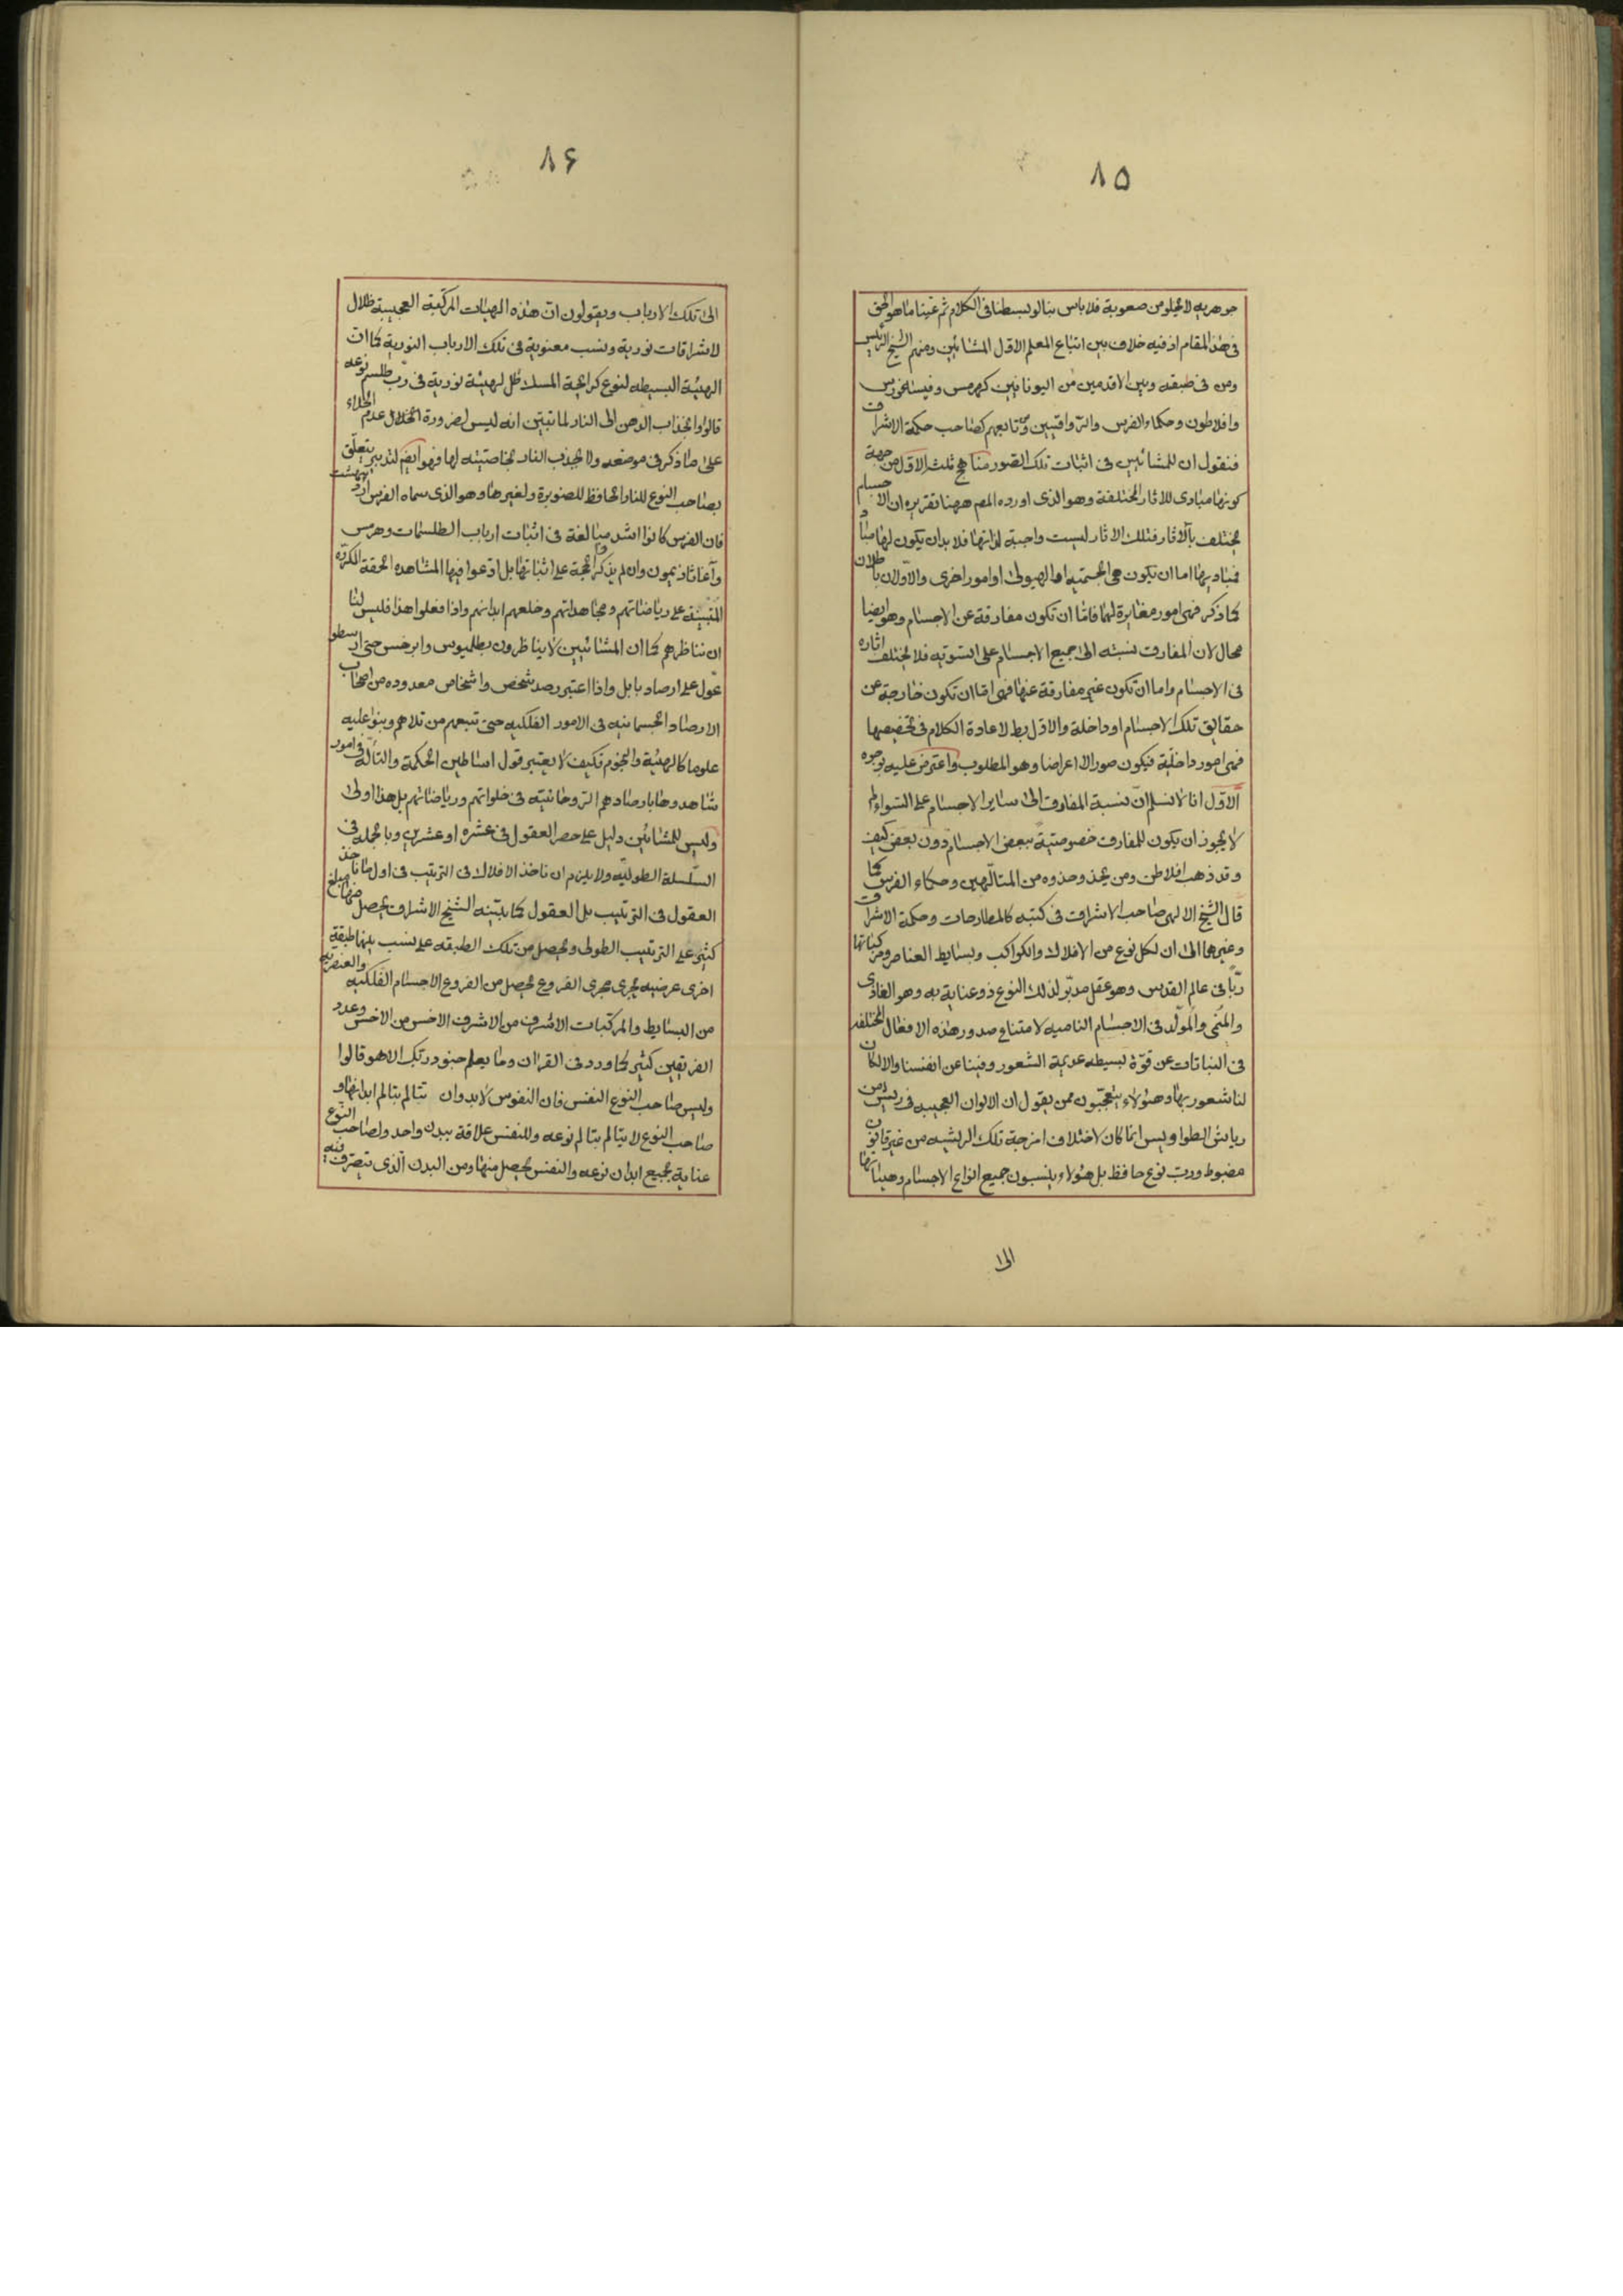 ٨٥
جوهريه لا يخلو من صعوبة فلا باس بنا لو بسطنا فى الكلام ثم عيّنا ما هو الحق
فى هذا المقام اذ فيه خلاف بين اتباع المعلم الاول المشائين ومنهم الشيخ الرئيس
ومن فى طبقته وبين الاقدمين من اليونانيين كهرمس وفيثاغورس
وافلاطون وحكماء الفرس والرواقيين ومن تابعهم كصاحب حكمة الاشراق
فنقول ان للمشائين فى اثبات تلك الصور مناهج ثلث الاول من جهة
كونها مبادى للاثار المختلفة وهو الذى اورده المصر ههنا تقريره ان الاجسام
يختلف بالاثار فتلك الاثار ليست واجبة لذاتها فلا بد ان يكون لها مباد
فمباديها اما ان تكون هى الجسميه او الهيولى او امور اخرى والاوّلان باطلان
كما ذكر فهى امور مغايرة لهما فامّا ان تكون مفارقة عن الاجسام وهو ايضا
محال لان المفارق نسبته الى جميع الاجسام على السّويه فلا يختلف اثاره
فى الاجسام واما ان تكون غير مفارقة عنها فهى امّا ان تكون خارجة عن
حقايق تلك الاجسام او داخلة والاول بط لاعادة الكلام فى تخصيصها
فهى امور داخلية فيكون صورا لا اعراضا وهو المطلوب واعترض عليه بوجوه
الاوّل انا لا نسلم انّ نسبة المفارق الى ساير الاجسام على السّواء لم
لا يجوز ان يكون للمفارق خصوصيّة ببعض الاجسام دون بعض كيف
وقد ذهب افلاطن ومن يحذو حذوه من المتالّهين وحكماء الفرس كما
قال الشيخ الالهى صاحب الاشراق فى كتبه كالمطارحات وحكمة الاشراق
وغيرها الى ان لكل نوع من الافلاك والكواكب وبسايط العناصر ومركباتها
ربّا فى عالم القدس وهو عقل مدبّر لذلك النوع ذو عناية به وهو الغاذى
والمنمى والمولّد فى الاجسام الناميه لامتناع صدور هذه الافعال المختلفه
فى النباتات عن قوّة بسيطه عديمة الشعور وفينا عن انفسنا والا لكان
لنا شعور بها وهؤلاء يتعجّبون ممن يقول ان الالوان العجيبه فى ريش من
رياش الطواويس انما كان لاختلاف امزجة تلك الريشيه من غير قانون
مضبوط ورب نوع حافظ بل هؤلاء ينسبون جميع انواع الاجسام وهيئاتها
الى
٨٦
الى تلك الارباب ويقولون ان هذه الهيات المركّبة العجيبة ظلال
لاشراقات نورية ونسب معنوية فى تلك الارباب النورية كما ان
الهيئة البسيطه لنوع كرائحة المسك ظل لهيئة نورية فى ربّ طلسم نوعه
قالوا وانجذاب الدهن الى النار لما تبيّن انه ليس لضرورة الخلال عدم الخلاء
على ما ذكر فى موضعه ولا يجذب النار بخاصيته لها فهو ايضم لتدبير يتعلّق
بصاحب النوع للنار الحافظ للصنوبرة ولغيرها وهو الذى سماه الفرس ارديبهشت
فان الفرس كانوا اشد مبالغة فى اثبات ارباب الطلسمات وهرمس
وآغاثاذيمون وان لم يذكروا الحجة على اثباتها بل ادعوا فيها المشاهده الحقة المتكرره
المبتنية على رياضاتهم ومجاهداتهم وخلعهم ابدانهم واذا فعلوا هذا فليس لنا
ان نناظرهم كما ان المشائيين لا يناظرون بطلميوس وابرخس حتى ارسطو
عوّل على ارصاد بابل واذا اعتبر رصد شخص واشخاص معدوده من اصحاب
الارصاد الجسمانيه فى الامور الفلكيه حتى تبعهم من تلاهم وبنوا عليه
علوما كالهيئة والنجوم فكيف لا يعتبر قول اساطين الحكمة والتأله فى امور
شاهدوها بارصادهم الروحانية فى خلواتهم ورياضاتهم بل هذا اولى
وليس للمشائين دليل على حصر العقول فى عشره او عشرين وبالجمله فى
السّلسلة الطوليّه ولا يلزم ان تاخذ الافلاك فى الترتيب فى اول ما تاخذ
العقول فى الترتيب بل العقول كما بيّنه الشيخ الاشراق يحصل منها مبلغ
كثير على الترتيب الطولى ويحصل من تلك الطبقه على نسب بينها طبقة
اخرى عرضيه يجرى مجرى الفروع يحصل من الفروع الاجسام الفلكيه والعنصريه
من البسايط والمركّبات الاشرف من الاشرف الاخس من الاخس وعدد
الفريقين كثير كما ورد فى القران وما يعلم جنود ربّك الا هو قالوا
وليس صاحب النوع النفس فان النفوس لا بد وان تتالم بتالم ابدانها و
صاحب النوع لا يتالم بتالم نوعه وللنفس علاقة ببدن واحد ولصاحب النّوع
عناية بجميع ابدان نوعه والنفس يحصل منها ومن البدن الّذى يتصرف فيه